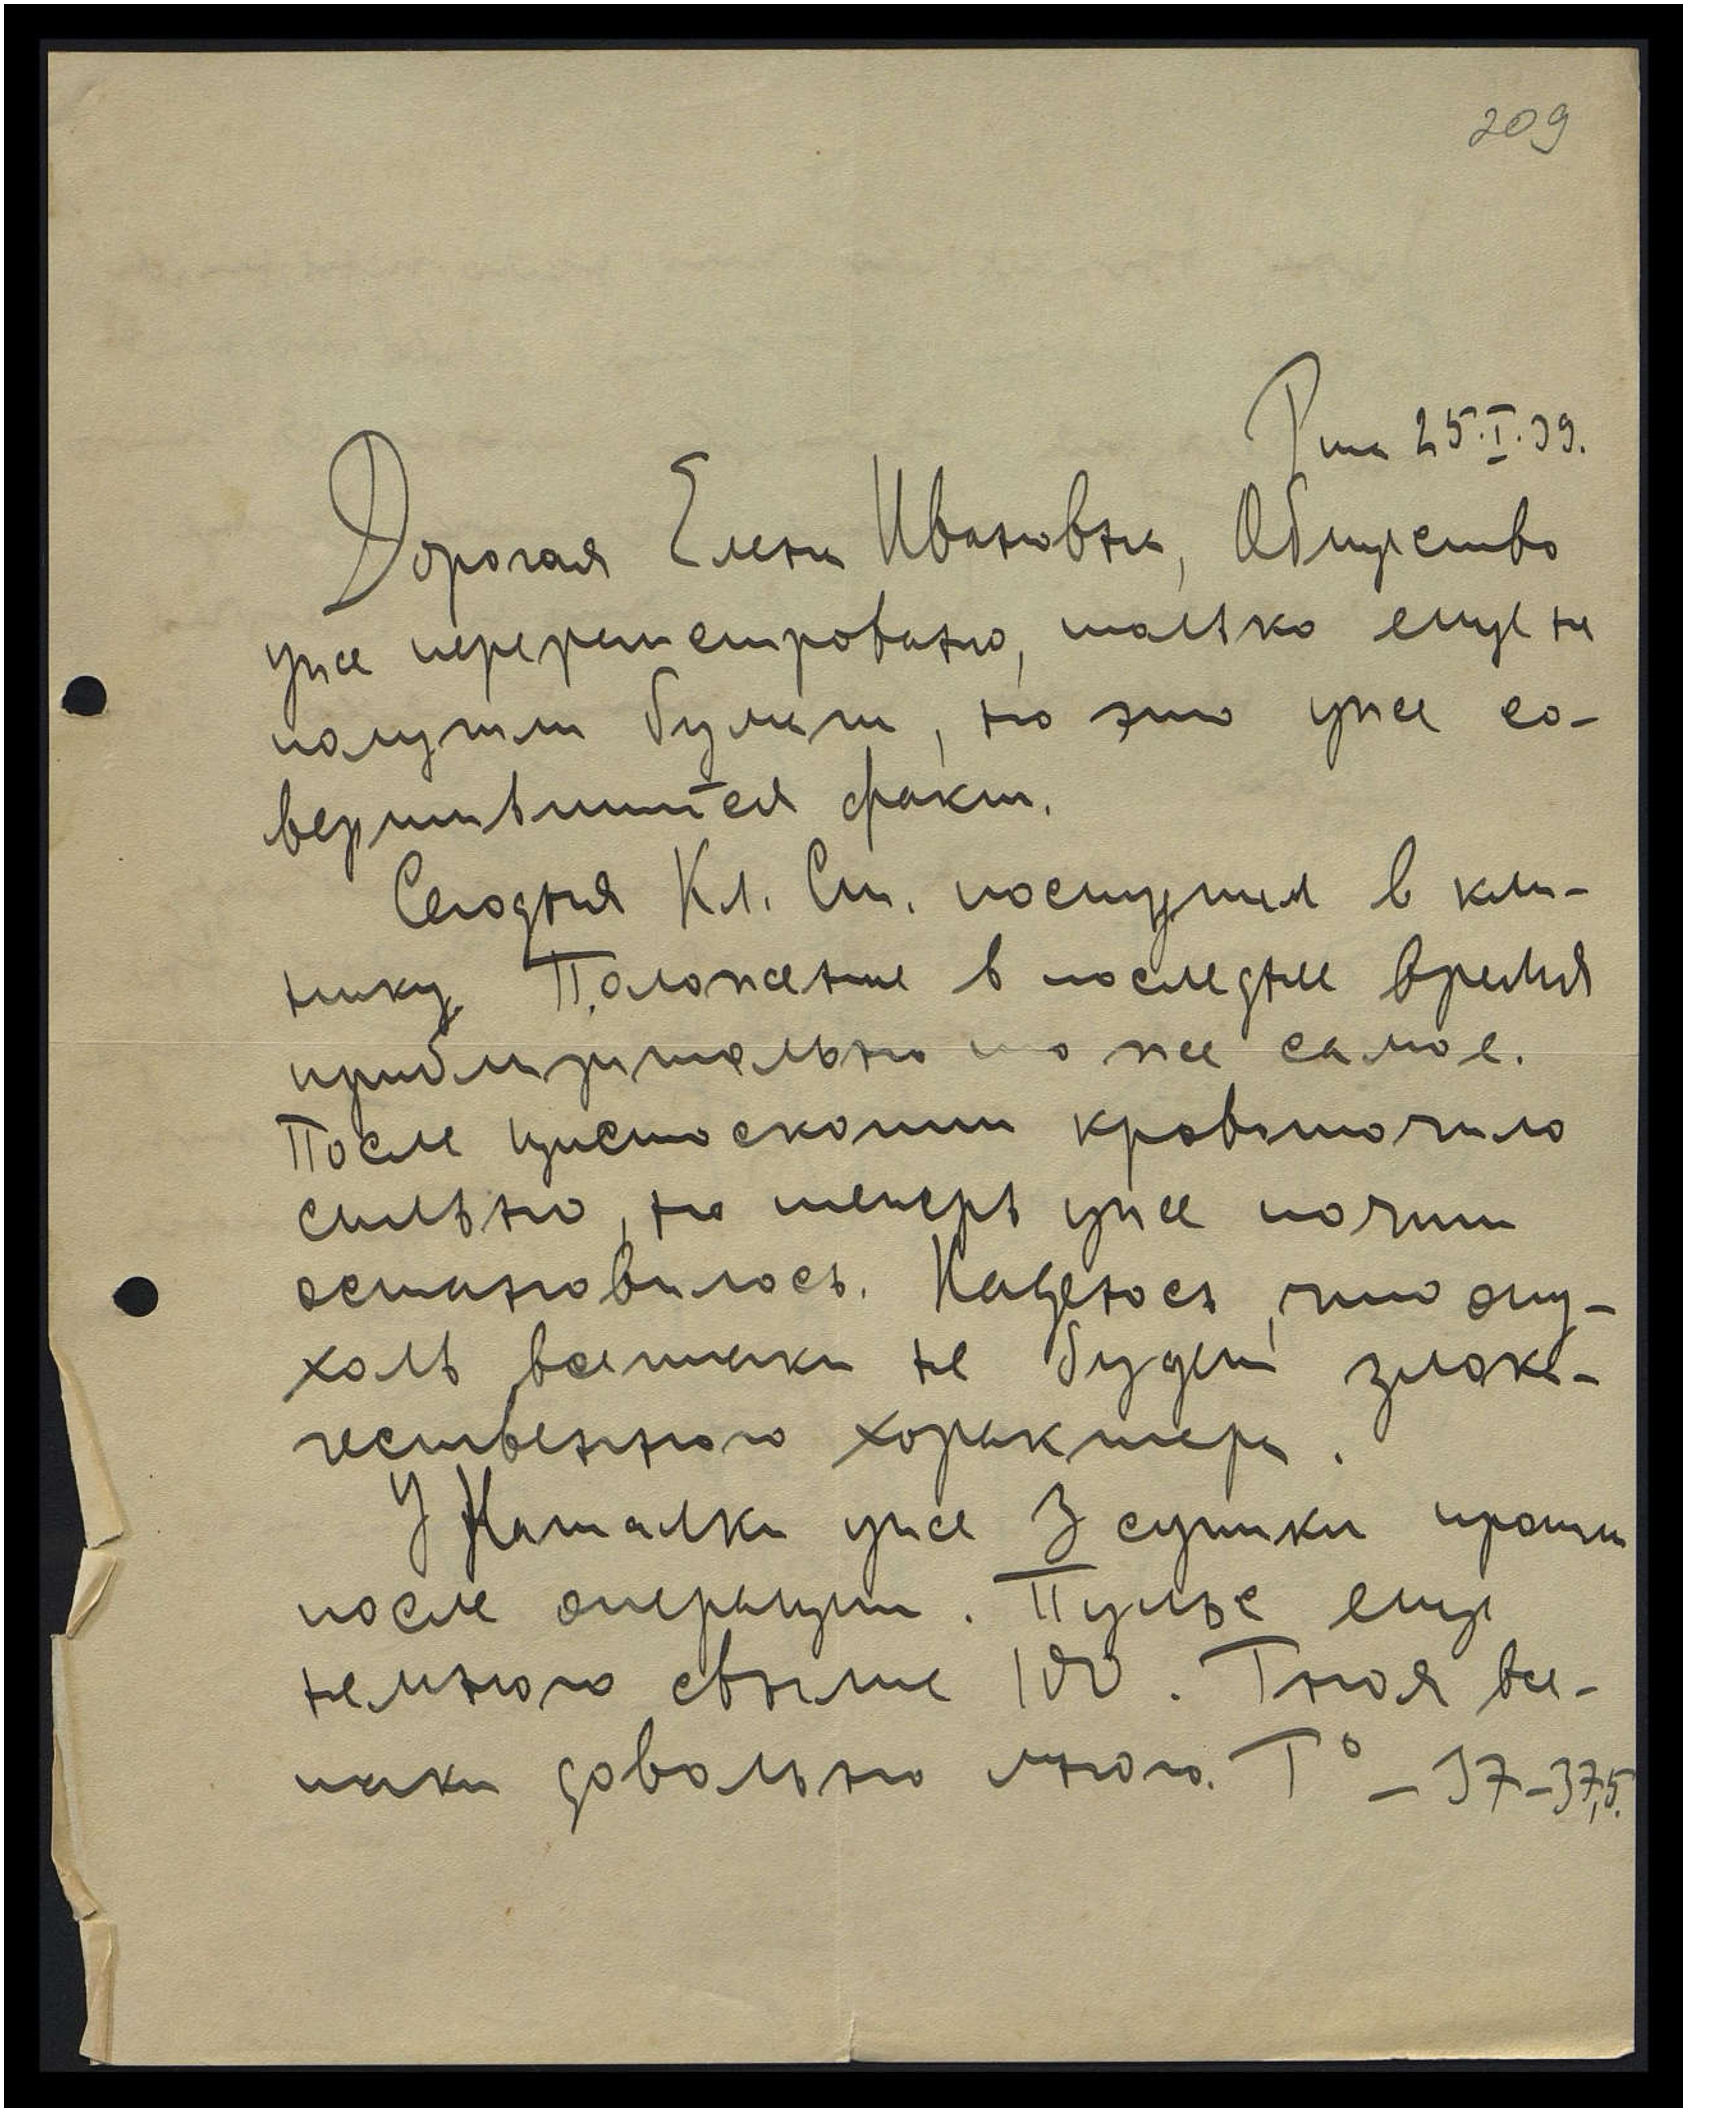 209
Рига 25.I.39.
Дорогая Елена Ивановна, Общество
уже перерегистровано, только еще не
получили бумаги, но это уже со-
вершившийся факт.
Сегодня Кл. Ст. поступил в кли-
нику. Положение в последнее время
приблизительно то же самое.
После цистоскопии кровоточило
сильно, но теперь уже почти
остановилось. Надеюсь, что опу-
холь всетаки не будет злока-
чественного характера.
У Наталки уже 3 сутки прошли
после операции. Пульс еще
немного свыше 100. Гноя все-
таки довольно много. Т° – 37–37,5.